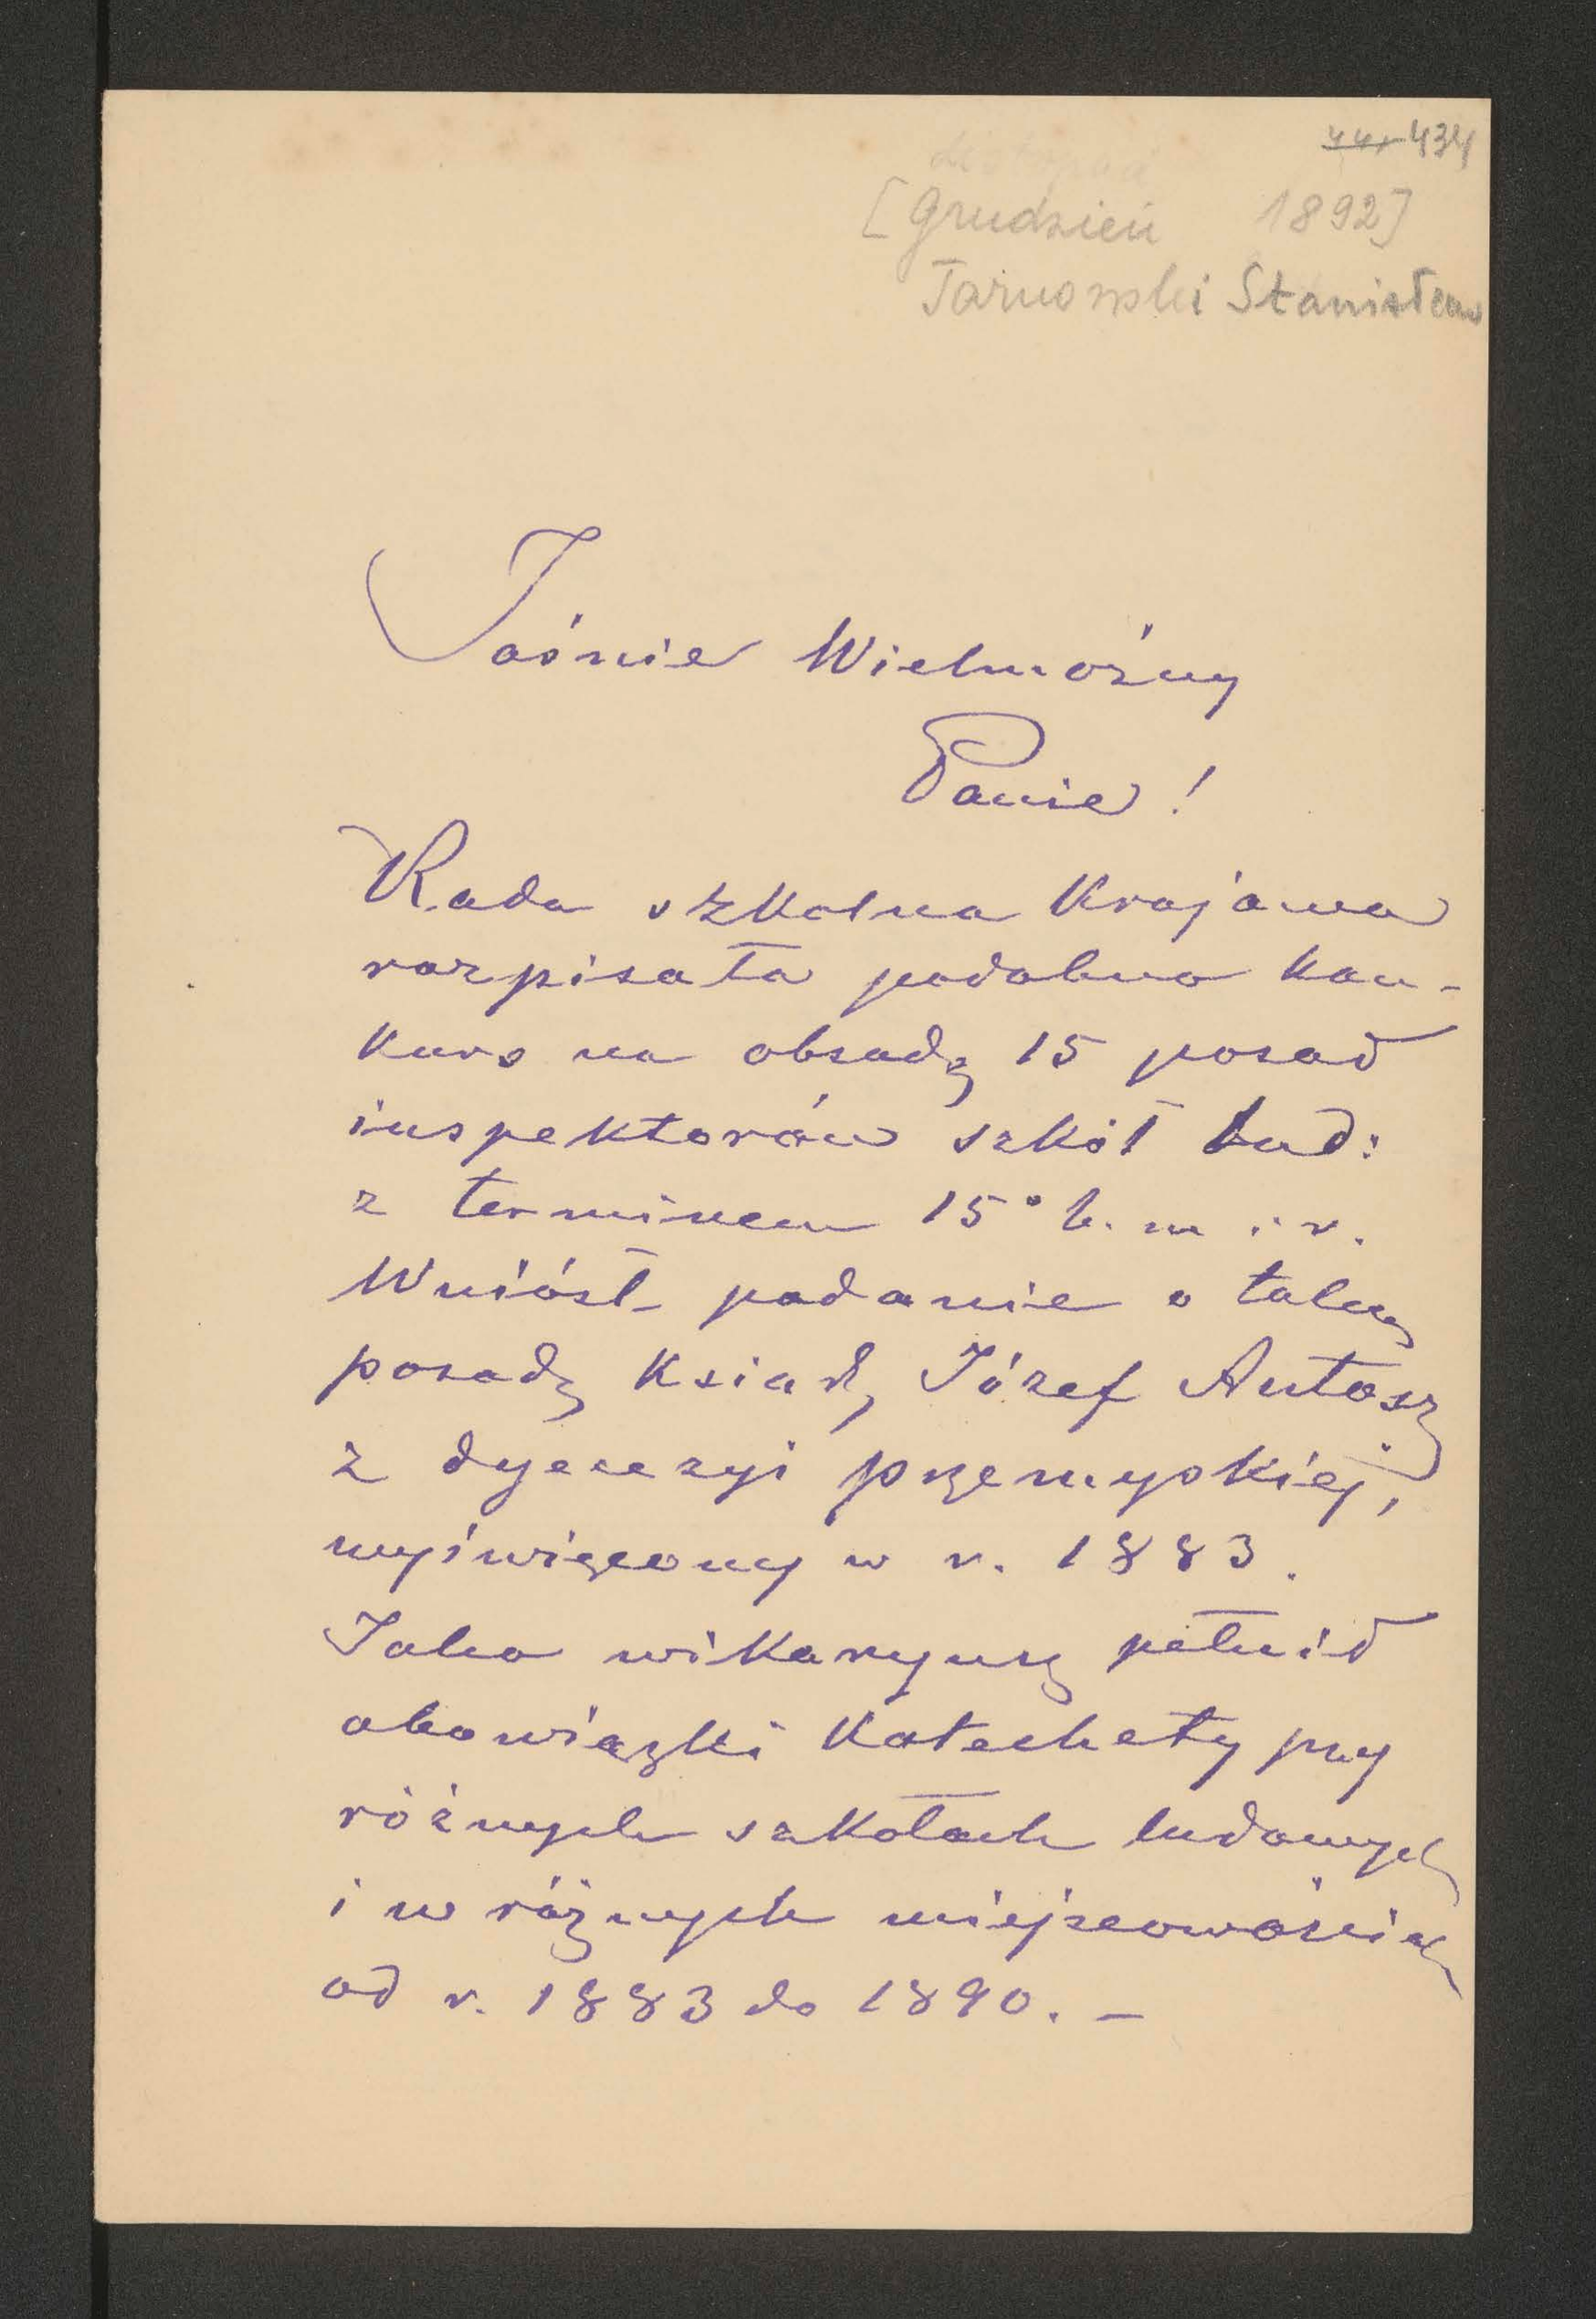 434
[Grudzień 1892]
Tarnowski Stanisław
Jaśnie Wielmożny
Panie!
Rada szkolna Krajowa
rozpisała podobno kon-
kurs na obsadę 15 posad
inspektorów szkół lud:
z terminem 15° b. m. i r.
Wniósł podanie o taką
posadę Ksiądz Józef Antosz
z dyecezyi przemyskiej,
wyświęcony w r. 1883.
Jako wikaryusz pełnił
obowiązki Katechety przy
różnych szkołach ludowych
i w różnych miejscowościach
od r. 1883 do 1890. –